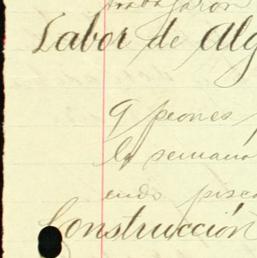 trabajaron
Labor de Alg
9 peones
la semana
endo pisca
Construcción